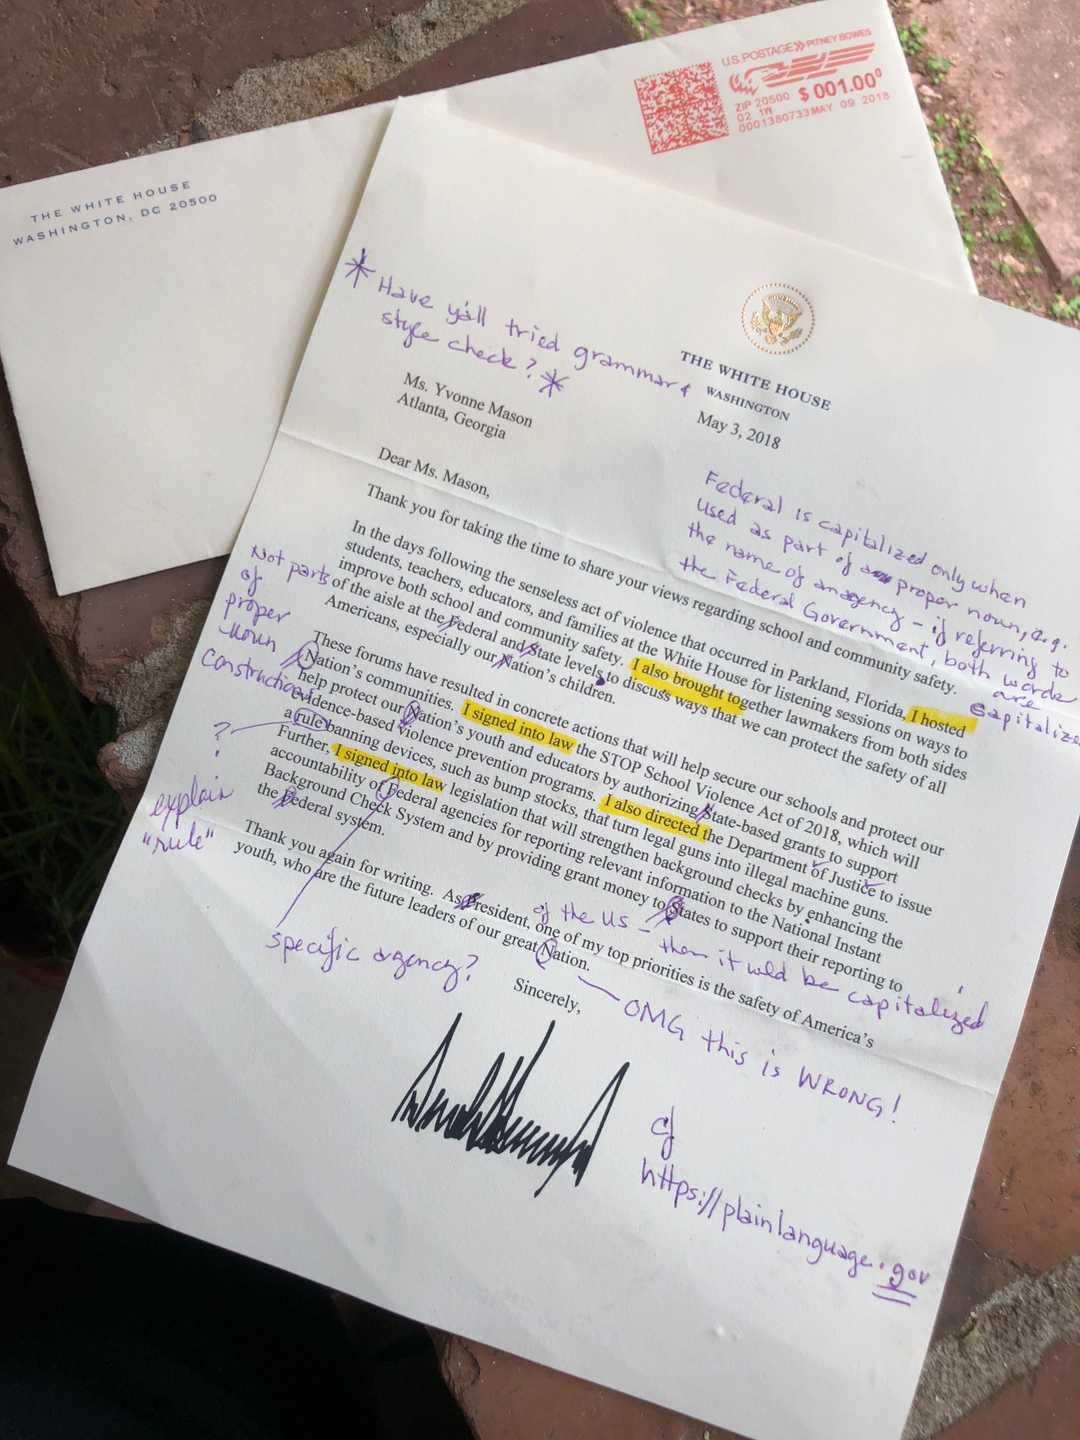 U.S. POSTAGE >> PITNEY BOWES
ZIP 20500 $ 001.00⁰
02 1W
0001380733 MAY 09 2018
THE WHITE HOUSE
WASHINGTON, DC 20500
* Have y'all tried grammar &
style check? *
THE WHITE HOUSE
WASHINGTON
May 3, 2018
Ms. Yvonne Mason
Atlanta, Georgia
Dear Ms. Mason,
Thank you for taking the time to share your views regarding school and community safety.
In the days following the senseless act of violence that occurred in Parkland, Florida, I hosted
students, teachers, educators, and families at the White House for listening sessions on ways to
improve both school and community safety. I also brought together lawmakers from both sides
of the aisle at the Federal and State levels to discuss ways that we can protect the safety of all
Americans, especially our Nation's children.
These forums have resulted in concrete actions that will help secure our schools and protect our
Nation's communities. I signed into law the STOP School Violence Act of 2018, which will
help protect our Nation's youth and educators by authorizing State-based grants to support
evidence-based violence prevention programs. I also directed the Department of Justice to issue
a rule banning devices, such as bump stocks, that turn legal guns into illegal machine guns.
Further, I signed into law legislation that will strengthen background checks by enhancing the
accountability of Federal agencies for reporting relevant information to the National Instant
Background Check System and by providing grant money to States to support their reporting to
the Federal system.
Thank you again for writing. As President, one of my top priorities is the safety of America's
youth, who are the future leaders of our great Nation.
Sincerely,
Federal is capitalized only when
used as part of a proper noun, e.g.
the name of an agency – if referring to
the Federal Government, both words
are
capitalized
Not parts
of
proper
noun
construction
?
?
explain
"rule"
specific agency?
of the US – then it would be capitalized
OMG this is WRONG!
cf
https://plainlanguage.gov